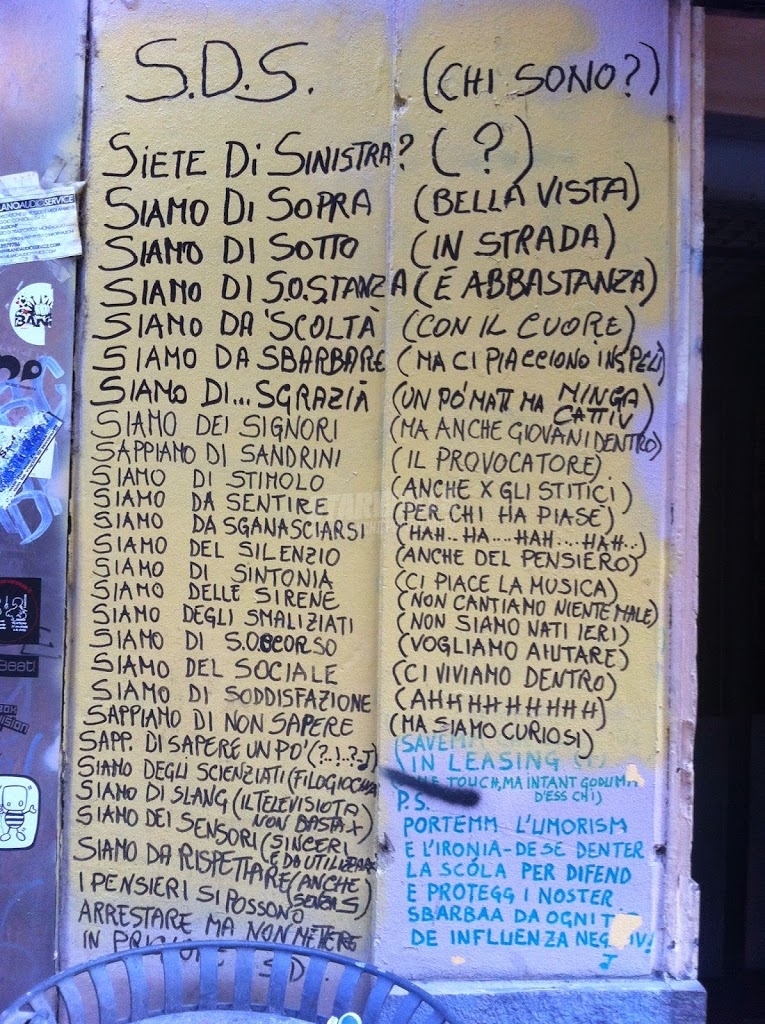 S.D.S. (CHI SONO?)
SIETE DI SINISTRA? (?)
SIAMO DI SOPRA (BELLA VISTA)
SIAMO DI SOTTO (IN STRADA)
SIAMO DI S.O.S.TANZA (E ABBASTANZA)
SIAMO DA 'SCOLTÀ (CON IL CUORE)
SIAMO DA SBARBARE (MA CI PIACCIONO IN S PELI)
SIAMO DI... SGRAZIÀ (UN PO' MATT MA MINGA CATTIV)
SIAMO DEI SIGNORI (MA ANCHE GIOVANI DENTRO)
SAPPIAMO DI SANDRINI (IL PROVOCATORE)
SIAMO DI STIMOLO (ANCHE X GLI STITICI)
SIAMO DA SENTIRE (PER CHI HA PIASE)
SIAMO DA SGANASCIARSI (HAH..HA....HAH....HAH..)
SIAMO DEL SILENZIO (ANCHE DEL PENSIERO)
SIAMO DI SINTONIA (CI PIACE LA MUSICA)
SIAMO DELLE SIRENE (NON CANTIAMO NIENTE MALE)
SIAMO DEGLI SMALIZIATI (NON SIAMO NATI IERI)
SIAMO DI S.O.CCORSO (VOGLIAMO AIUTARE)
SIAMO DEL SOCIALE (CI VIVIAMO DENTRO)
SIAMO DI SODDISFAZIONE (AHHHHHHHHH)
SAPPIAMO DI NON SAPERE (MA SIAMO CURIOSI)
SAPP. DI SAPERE UN PO' (?..!..?..)
SIAMO DEGLI SCIENZIATI
SIAMO DI SLANG (IL TELEVISIOTA NON BASTA X)
SIAMO DEI SENSORI (SINCERI E DA UTILIZZARE
SIAMO DA RISPETTARE (ANCHE SENZA S)
I PENSIERI SI POSSONO
ARRESTARE MA NON METTERE
IN
IN LEASING
TOUCH, MA INTANT
D'ESS CHI)
P.S.
PORTEMM L'UMORISM
E L'IRONIA-DE SE DENTER
LA SCÓLA PER DIFEND
E PROTEGG I NOSTER
SBARBAA DA OGNI
DE INFLUENZA
AUDIOSERVICE